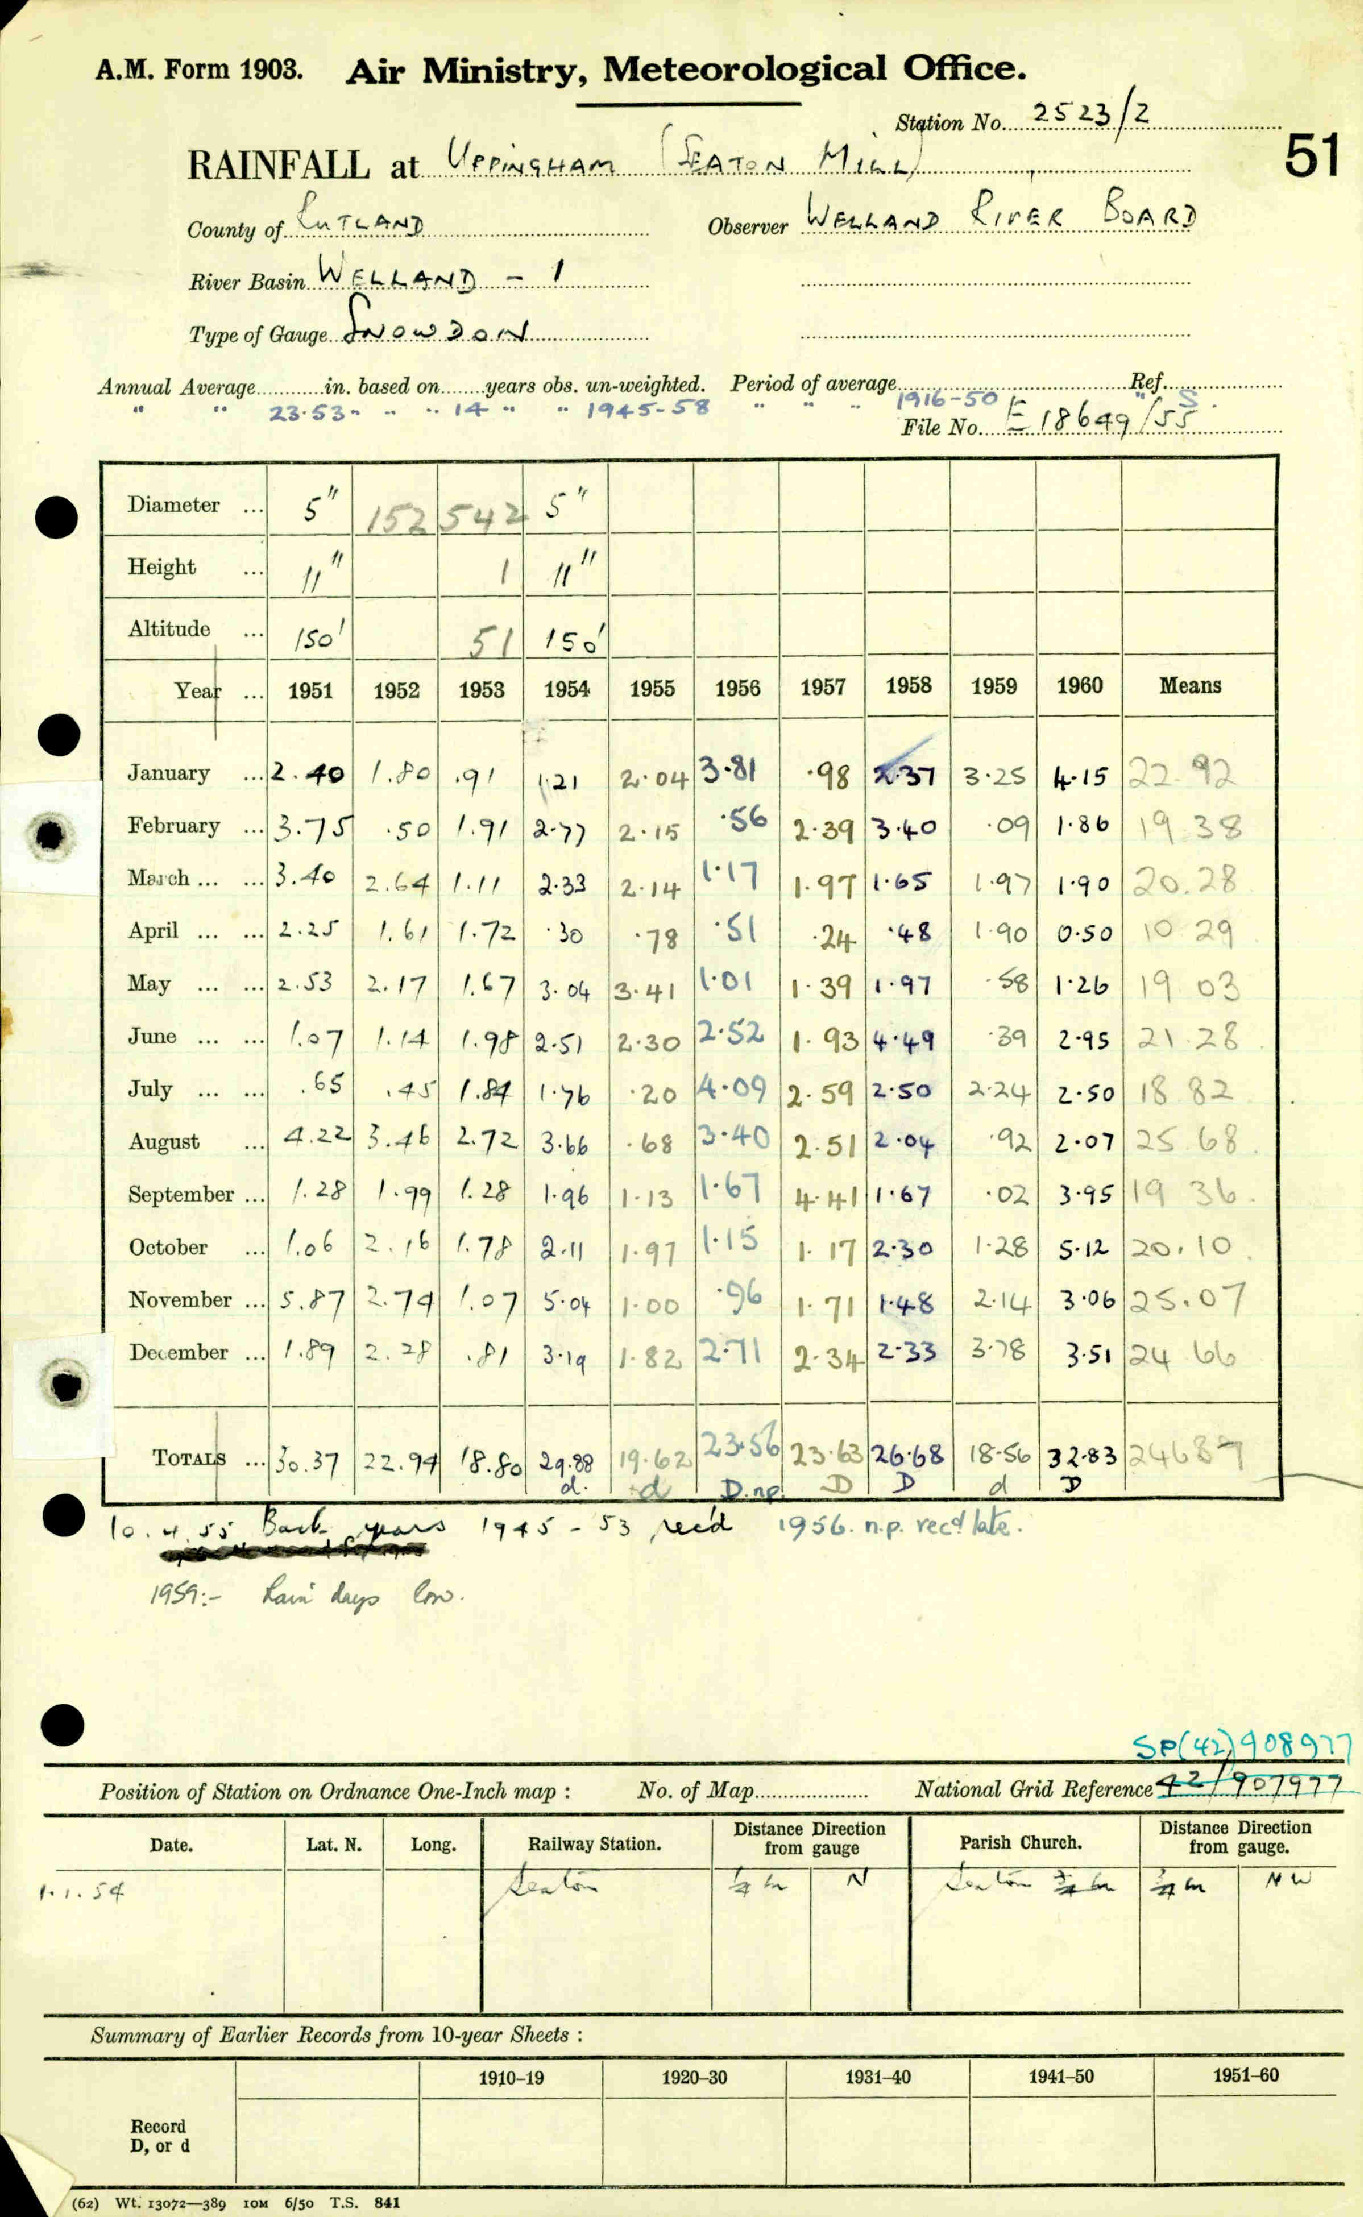 A.M. Form 1903. Air Ministry, Meteorological Office.
Station No. 2523/2
51
RAINFALL at UPPINGHAM (SEATON MILL)
County of RUTLAND Observer WELLAND RIVER BOARD
River Basin WELLAND - 1
Type of Gauge SNOWDON
Annual Average in. based on years obs. un-weighted. Period of average Ref.
" " 23.53 " " " 14 " " 1945-58 " " " 1916-50 " S.
File No. E 18649/55
Diameter ... 5" 152 542 5"
Height ... 11" 1 11"
Altitude ... 150' 51 150'
Year ... 1951 1952 1953 1954 1955 1956 1957 1958 1959 1960 Means
January ... 2.40 1.80 .91 1.21 2.04 3.81 .98 2.37 3.25 4.15 22.92
February ... 3.75 .50 1.91 2.77 2.15 .56 2.39 3.40 .09 1.86 19 38
March ... ... 3.40 2.64 1.11 2.33 2.14 1.17 1.97 1.65 1.97 1.90 20.28
April ... ... 2.25 1.61 1.72 .30 .78 .51 .24 .48 1.90 0.50 10 29
May ... ... 2.53 2.17 1.67 3.04 3.41 1.01 1.39 1.97 .58 1.26 19 03
June ... ... 1.07 1.14 1.98 2.51 2.30 2.52 1.93 4.49 .39 2.95 21.28
July ... ... .65 .45 1.84 1.76 .20 4.09 2.59 2.50 2.24 2.50 18 82
August ... 4.22 3.46 2.72 3.66 .68 3.40 2.51 2.04 .92 2.07 25 68
September ... 1.28 1.99 1.28 1.96 1.13 1.67 4.41 1.67 .02 3.95 19 36
October ... 1.06 2.16 1.78 2.11 1.97 1.15 1.17 2.30 1.28 5.12 20.10
November ... 5.87 2.74 1.07 5.04 1.00 .96 1.71 1.48 2.14 3.06 25.07
December ... 1.89 2.28 .81 3.19 1.82 2.71 2.34 2.33 3.78 3.51 24 66
TOTALS ... 30.37 22.94 18.80 29.88 19.62 23.56 23.63 26.68 18.56 32.83 24687
d. d D.np. D D d D
10.4.55 Back years 1945-53 rec'd 1956. n.p. recd late.
1959:- Rain days low.
SP(42)908977
Position of Station on Ordnance One-Inch map : No. of Map National Grid Reference 42/907977
Date. Lat. N. Long. Railway Station. Distance Direction from gauge Parish Church. Distance Direction from gauge.
1.1.54 Seaton ¼ m N Seaton NW
Summary of Earlier Records from 10-year Sheets :
1910–19 1920–30 1931–40 1941–50 1951–60
Record
D, or d
(62) Wt. 13072—389 10M 6/50 T.S. 841